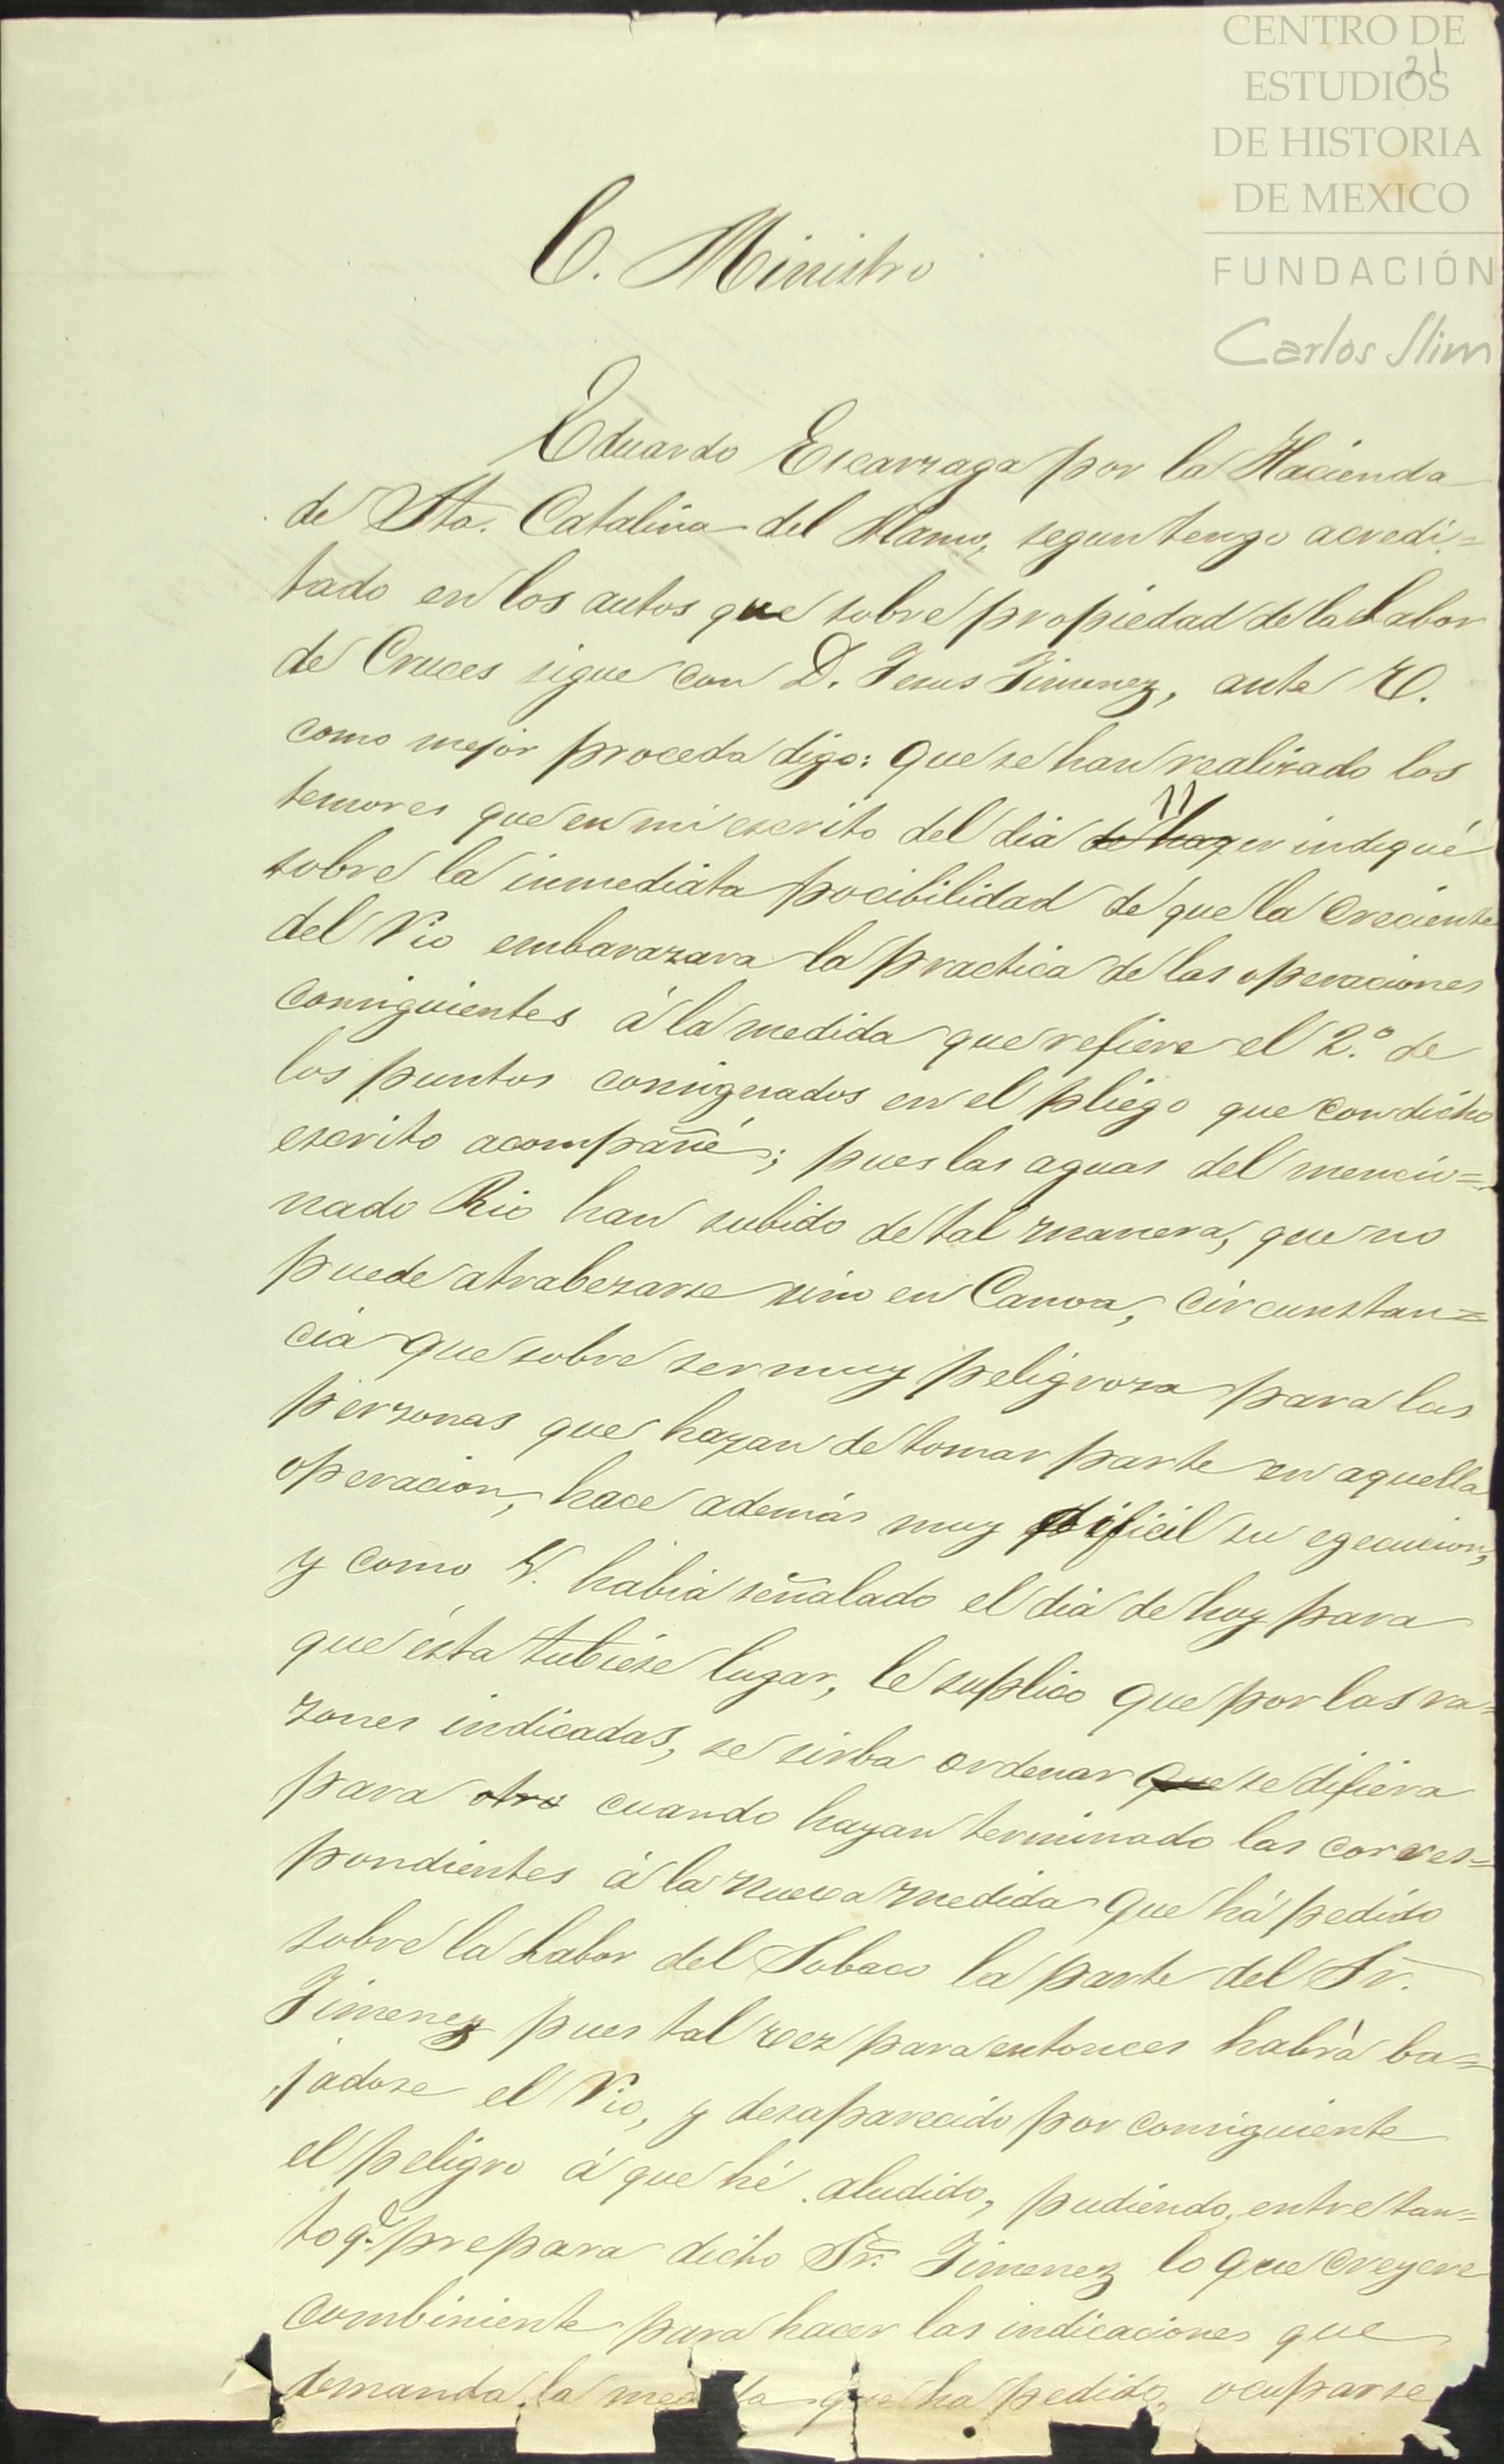 CENTRO DE
ESTUDIOS
DE HISTORIA
DE MEXICO
FUNDACIÓN
Carlos Slim
21
C. Ministro
Eduardo Escarzaga por la Hacienda
de Sta. Catalina del Alamo, segun tengo acredi=
tado en los autos que sobre propiedad de la Labor
de Cruces sigue con D. Jesus Jimenez, ante V.
como mejor proceda digo: que se han realizado los
temores que en mi escrito del dia 11 indiqué
sobre la inmediata pocibilidad de que la creciente
del rio embarazara la practica de las operaciones
consiguientes á la medida que refiere el 2.º de
los puntos consignados en el pliego que con dicho
escrito acompañé; pues las aguas del mencio=
nado Rio han subido de tal manera, que no
puede atrabezarse sino en Canoa, circunstan=
cia que sobre ser muy peligroza para las
perzonas que hayan de tomar parte en aquella
operacion, hace además muy dificil su egecucion,
y como V. habia señalado el dia de hoy para
que ésta tubiese lugar, le suplico que por las ra=
zones indicadas, se sirba ordenar que se difiera
para otro cuando hayan terminado las corres=
pondientes á la nueva medida que há pedido
sobre la Labor del Sobaco la parte del Sr.
Jimenez pues tal vez para entonces habrá ba=
jadose el rio, y desaparecido por consiguiente
el peligro á que hé aludido, pudiendo, entre tan=
to q.e prepara dicho Sr. Jimenez lo que creyere
combiniente para hacer las indicaciones que
demanda la medida que ha pedido, ocuparse